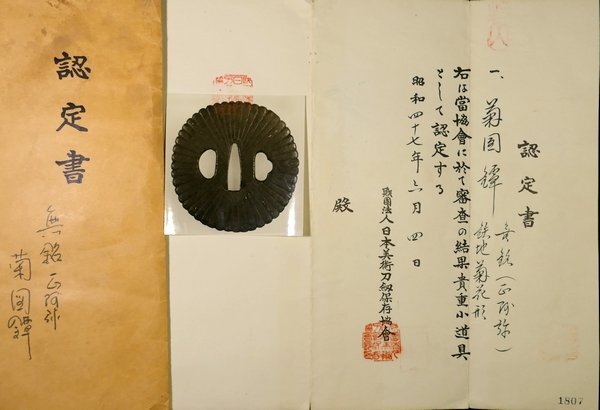 認定書
無銘 正阿弥
菊図鐔
認定書
一、菊図鐔 無銘(正阿弥)
鉄地菊花形
右は當協會に於て審査の結果貴重小道具
として認定する
昭和四十七年六月四日
財団法人日本美術刀剣保存協會
殿
1807